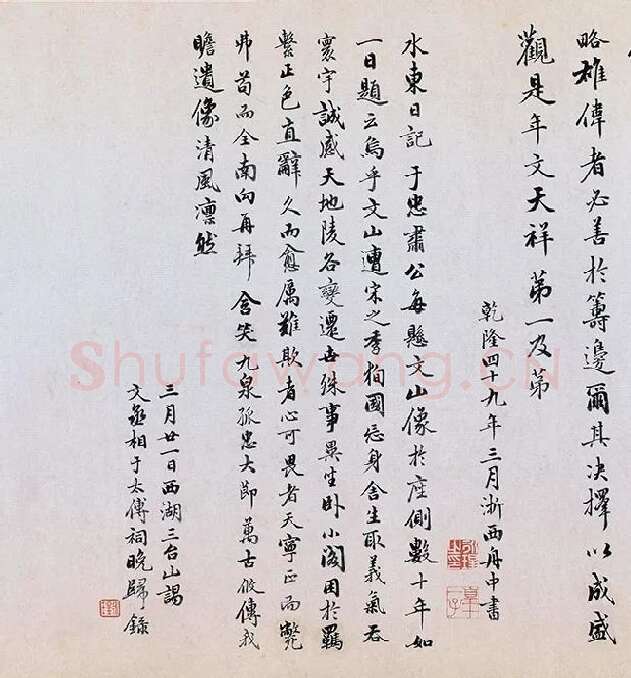 略雄偉者必善於籌邊爾其決擇以成盛
觀是年文天祥第一及第
乾隆四十九年三月浙西舟中書
水東日記于忠肅公每懸文山像於座側數十年如
一日題云烏乎文山遭宋之季徇國忘身舍生取義氣吞
寰宇誠感天地陵谷變遷世殊事異坐卧小閣困於羈
繫正色直辭久而愈厲難欺者心可畏者天寧正而斃
弗苟而全南向再拜含笑九泉孤忠大節萬古攸傳我
瞻遺像清風凛然
三月廿一日西湖三台山謁
文丞相于太傅祠晚歸錄
Shufawang.CN